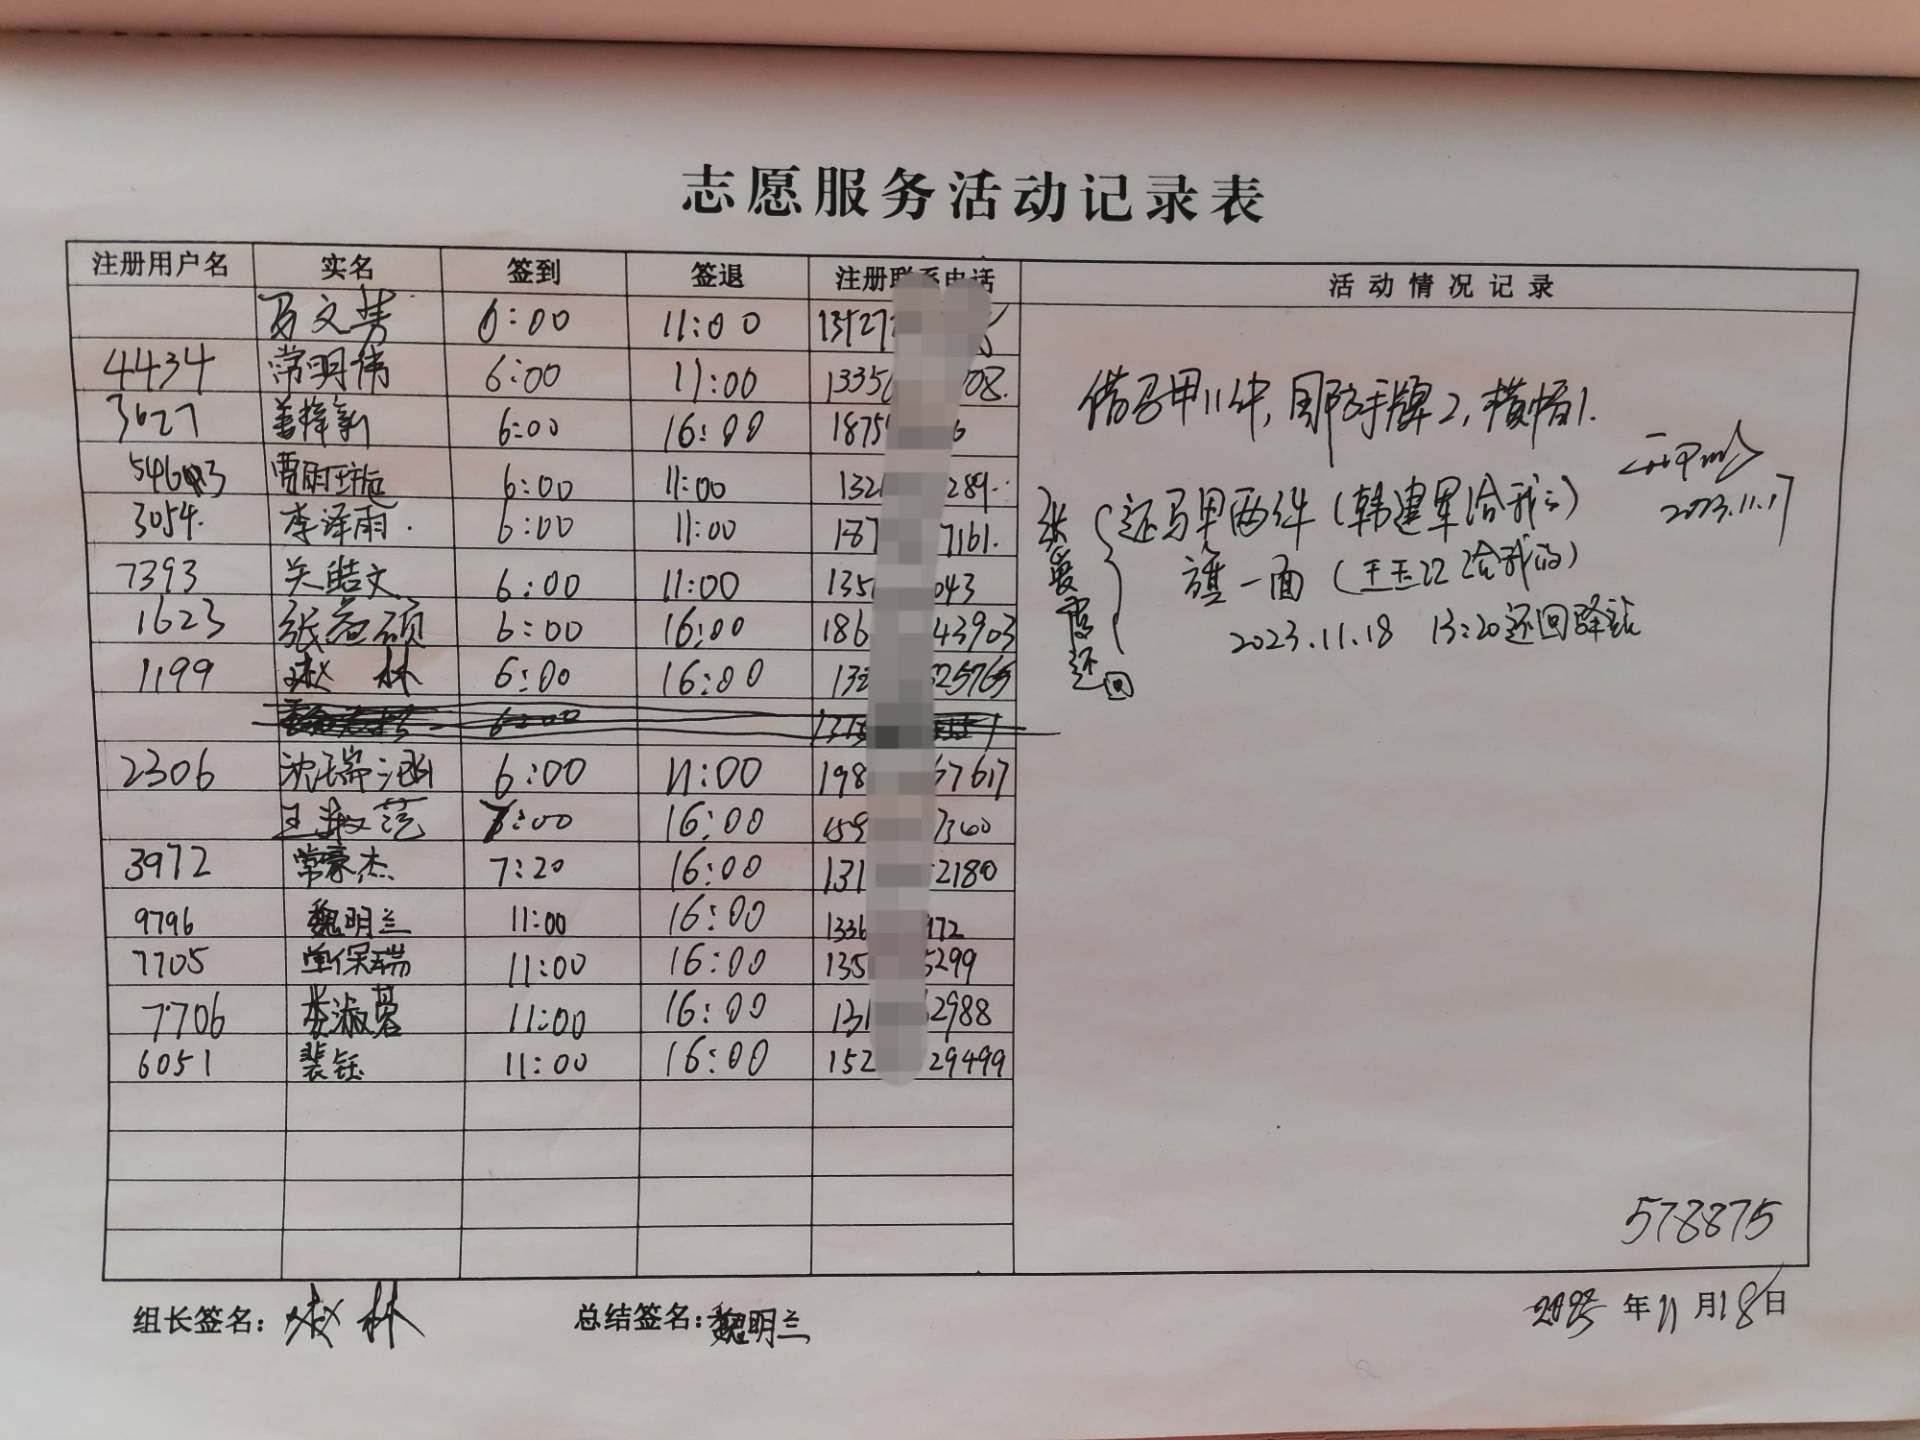 志愿服务活动记录表
注册用户名 实名 签到 签退 注册联系电话 活动情况记录
6:00 11:00
4434 常明伟 6:00 11:00 1335 08.
3627 姜梓新 6:00 16:00 1875 6
贾雨璇 6:00 11:00 132 289..
3054. 李泽雨. 6:00 11:00 187 7161.
7393 关皓文 6:00 11:00 135 043
1623 张益硕 6:00 16:00 186 43903
1199 赵林 6:00 16:00 132 25765
2306 沈瑞涵 6:00 11:00 198 67617
王敏 :00 16:00 159 7360
3972 常豪杰 7:20 16:00 131 2180
9796 魏明兰 11:00 16:00 1336 972
7705 保瑞 11:00 16:00 135 5299
7706 李淑 11:00 16:00 131 2988
6051 裴钰 11:00 16:00 152 29499
借马甲11件, 手牌2, 横幅1.
2023.11.17
还马甲两件(韩建军给我的)
旗一面(王玉 给我的)
2023.11.18 13:20还回降站
张爱 还回
578875
组长签名: 赵林 总结签名: 魏明兰 2023年11月18日